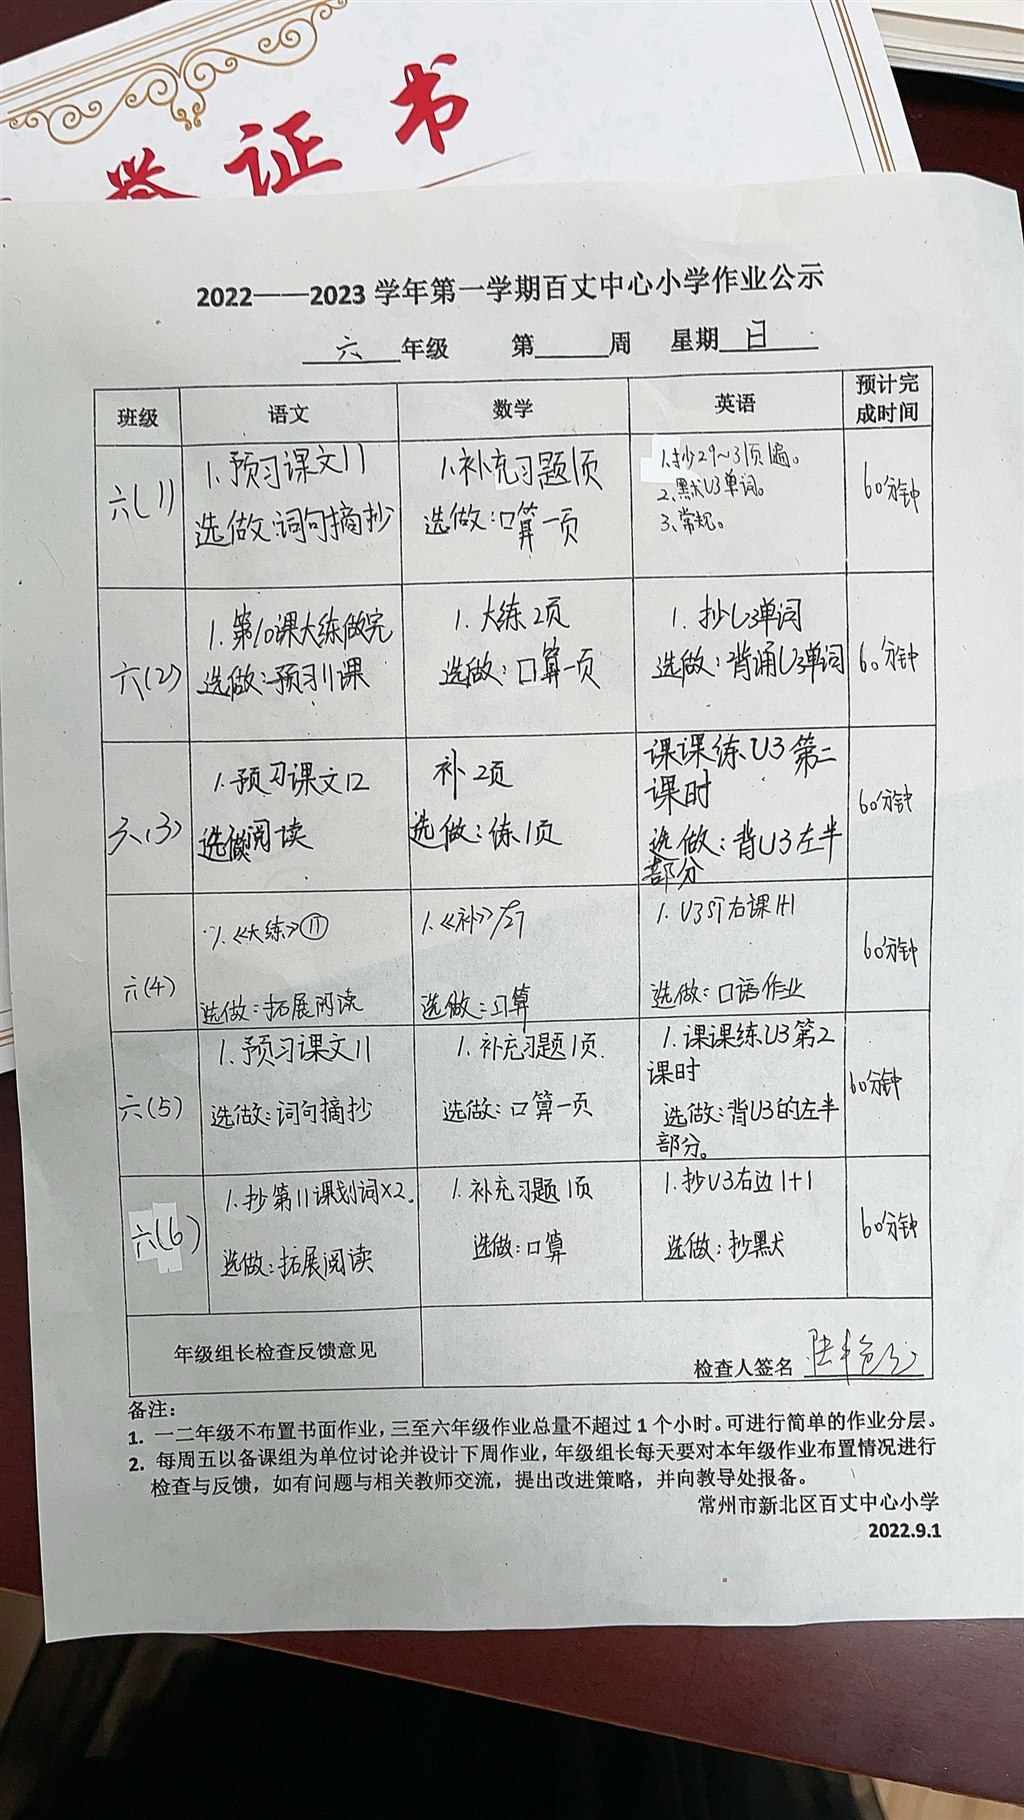 证书
2022——2023学年第一学期百丈中心小学作业公示
六年级 第____周 星期日
班级 语文 数学 英语 预计完成时间
六(1)
1.预习课文11
选做:词句摘抄
1.补充习题1页
选做:口算一页
1.抄29~31页1遍。
2.默U3单词。
3、常规。
60分钟
六(2)
1.第10课大练做完
选做:预习11课
1.大练2页
选做:口算一页
1.抄U3单词
选做:背诵U3单词
60分钟
六(3)
1.预习课文12
选做阅读
补2页
选做:练1页
课课练U3第二
课时
选做:背U3左半
部分
60分钟
六(4)
1.《大练》⑪
选做:拓展阅读
1.《补》P27
选做:口算
1.U3 右课1+1
选做:口语作业
60分钟
六(5)
1.预习课文11
选做:词句摘抄
1.补充习题1页.
选做:口算一页
1.课课练U3第2
课时
选做:背U3的左半
部分。
60分钟
六(6)
1.抄第11课划词×2.
选做:拓展阅读
1.补充习题1页
选做:口算
1.抄U3右边1+1
选做:抄默
60分钟
年级组长检查反馈意见
检查人签名
备注:
1. 一二年级不布置书面作业,三至六年级作业总量不超过1个小时。可进行简单的作业分层。
2. 每周五以备课组为单位讨论并设计下周作业,年级组长每天要对本年级作业布置情况进行
检查与反馈,如有问题与相关教师交流,提出改进策略,并向教导处报备。
常州市新北区百丈中心小学
2022.9.1